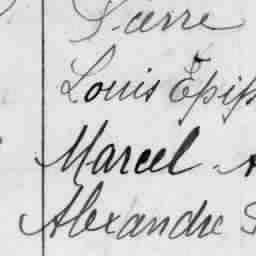 Pierre
Louis Epiph
Marcel A
Alexandre